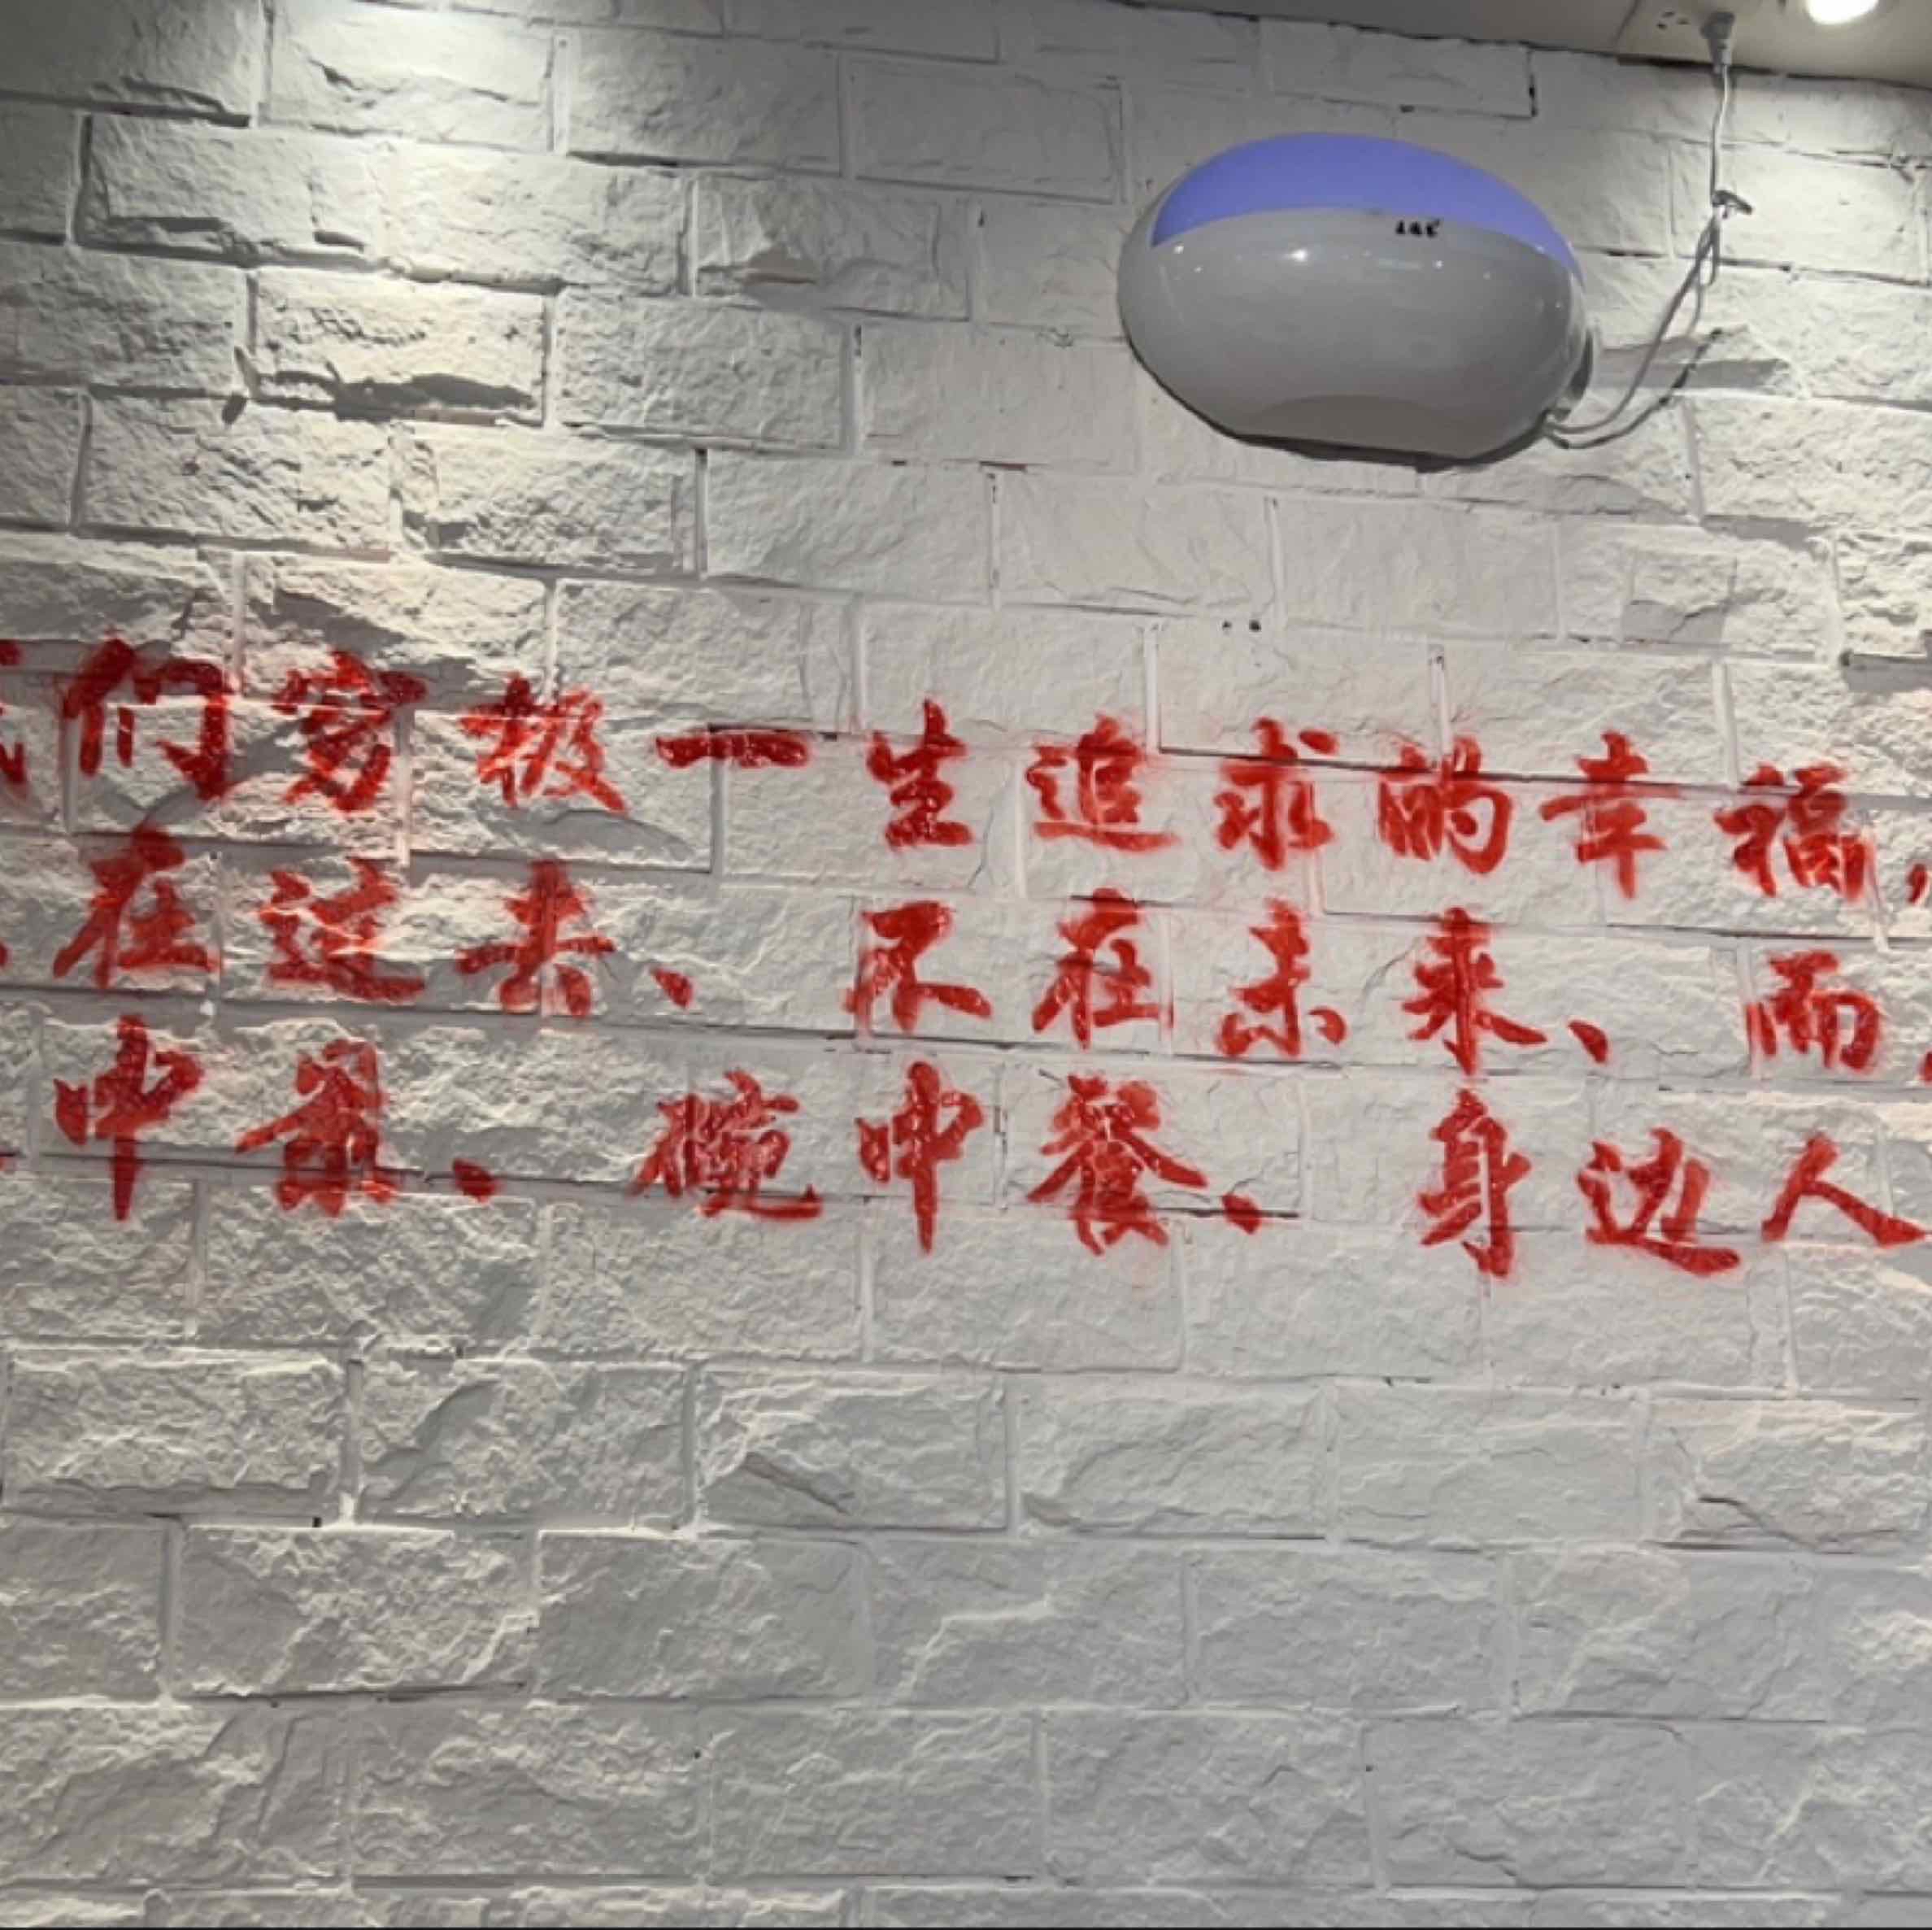 们穷极一生追求的幸福，
在过去、不在未来、而
中景、碗中餐、身边人